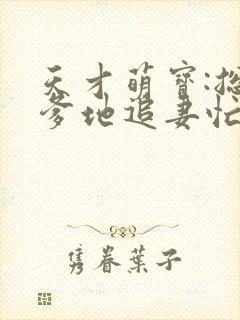 天才萌寶:
爹地追妻忙
隽眷葉子